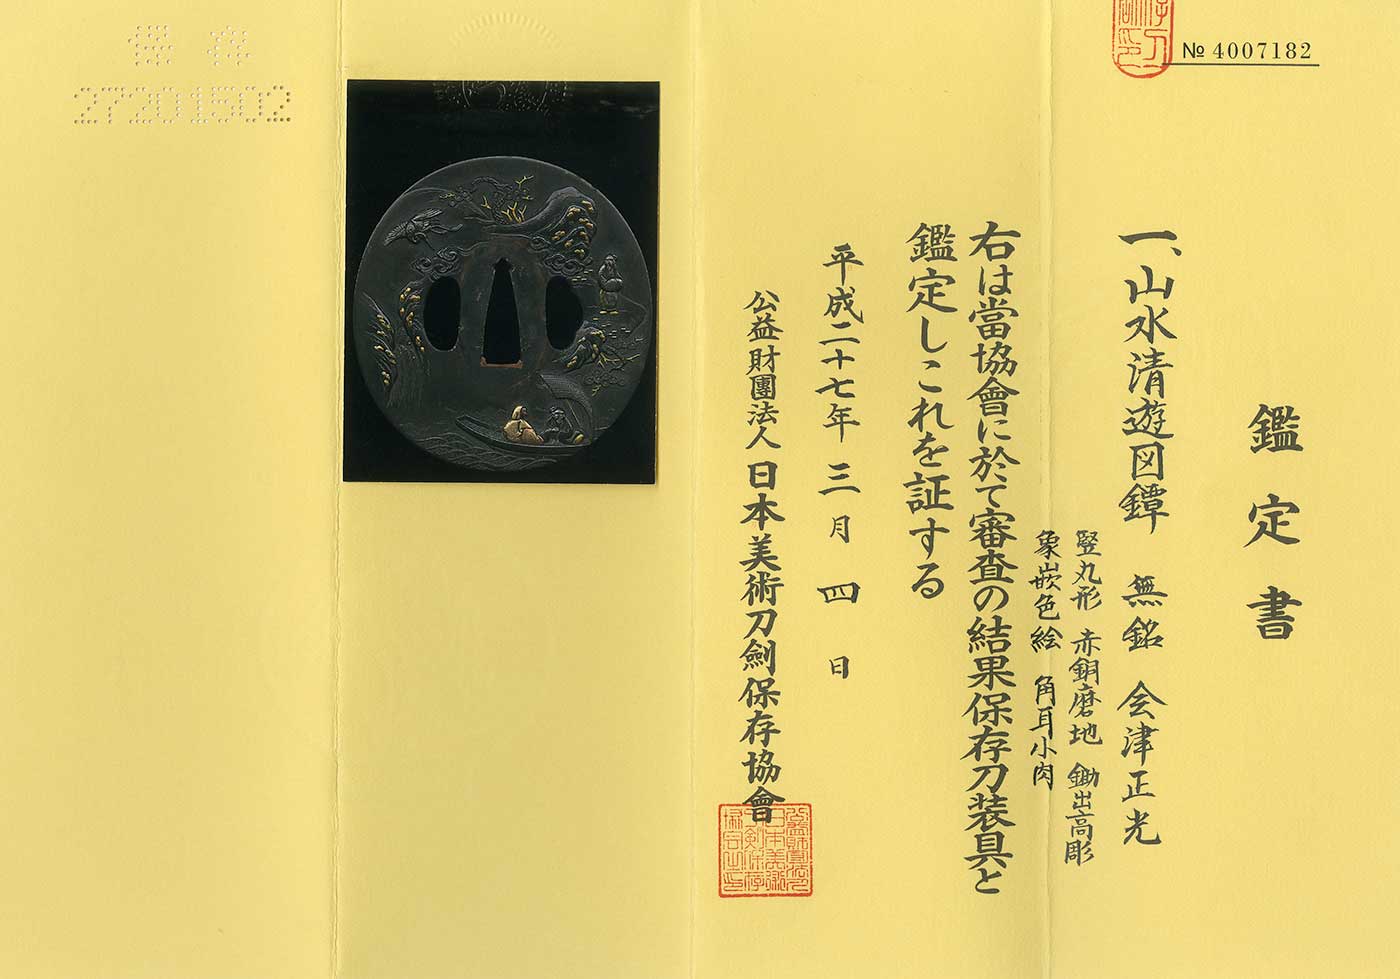 № 4007182
鑑定書
一、山水清遊図鐔 無銘 会津正光
竪丸形 赤銅磨地 鋤出高彫
象嵌色絵 角耳小肉
右は當協會に於て審査の結果保存刀装具と
鑑定しこれを証する
平成二十七年 三月 四日
公益財團法人 日本美術刀劍保存協會
保存
27201502